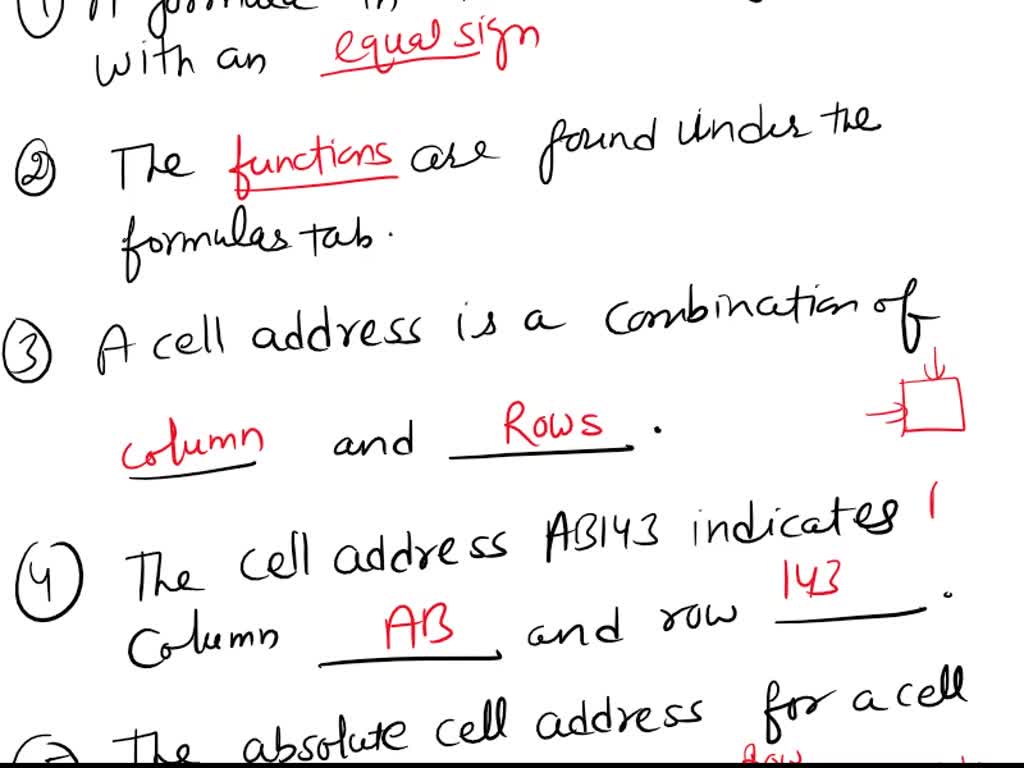 with an equal sign
② The functions are found under the
formulas tab.
③ A cell address is a combination of
column and Rows.
④ The cell address AB143 indicates
Column AB and row 143.
The absolute cell address for a cell
Row